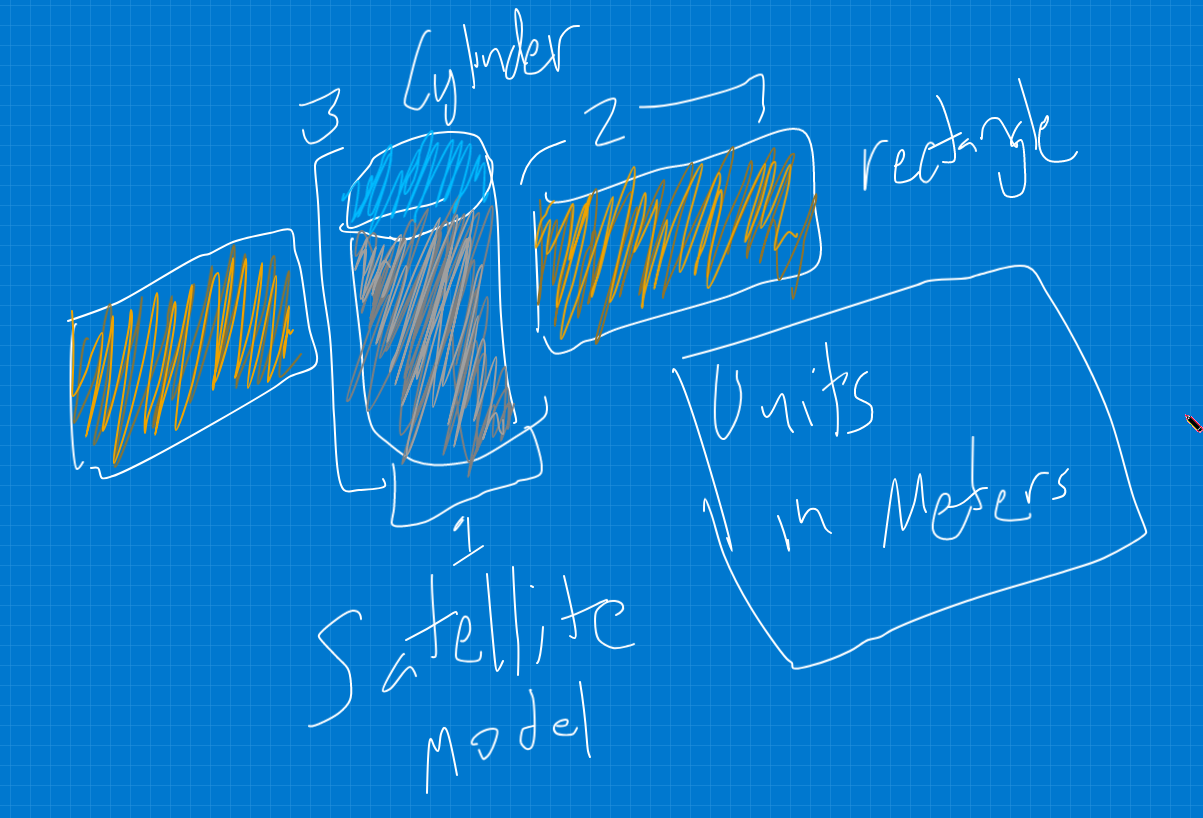 Cylinder
3
2
rectangle
Units
in Meters
1
Satellite
Model